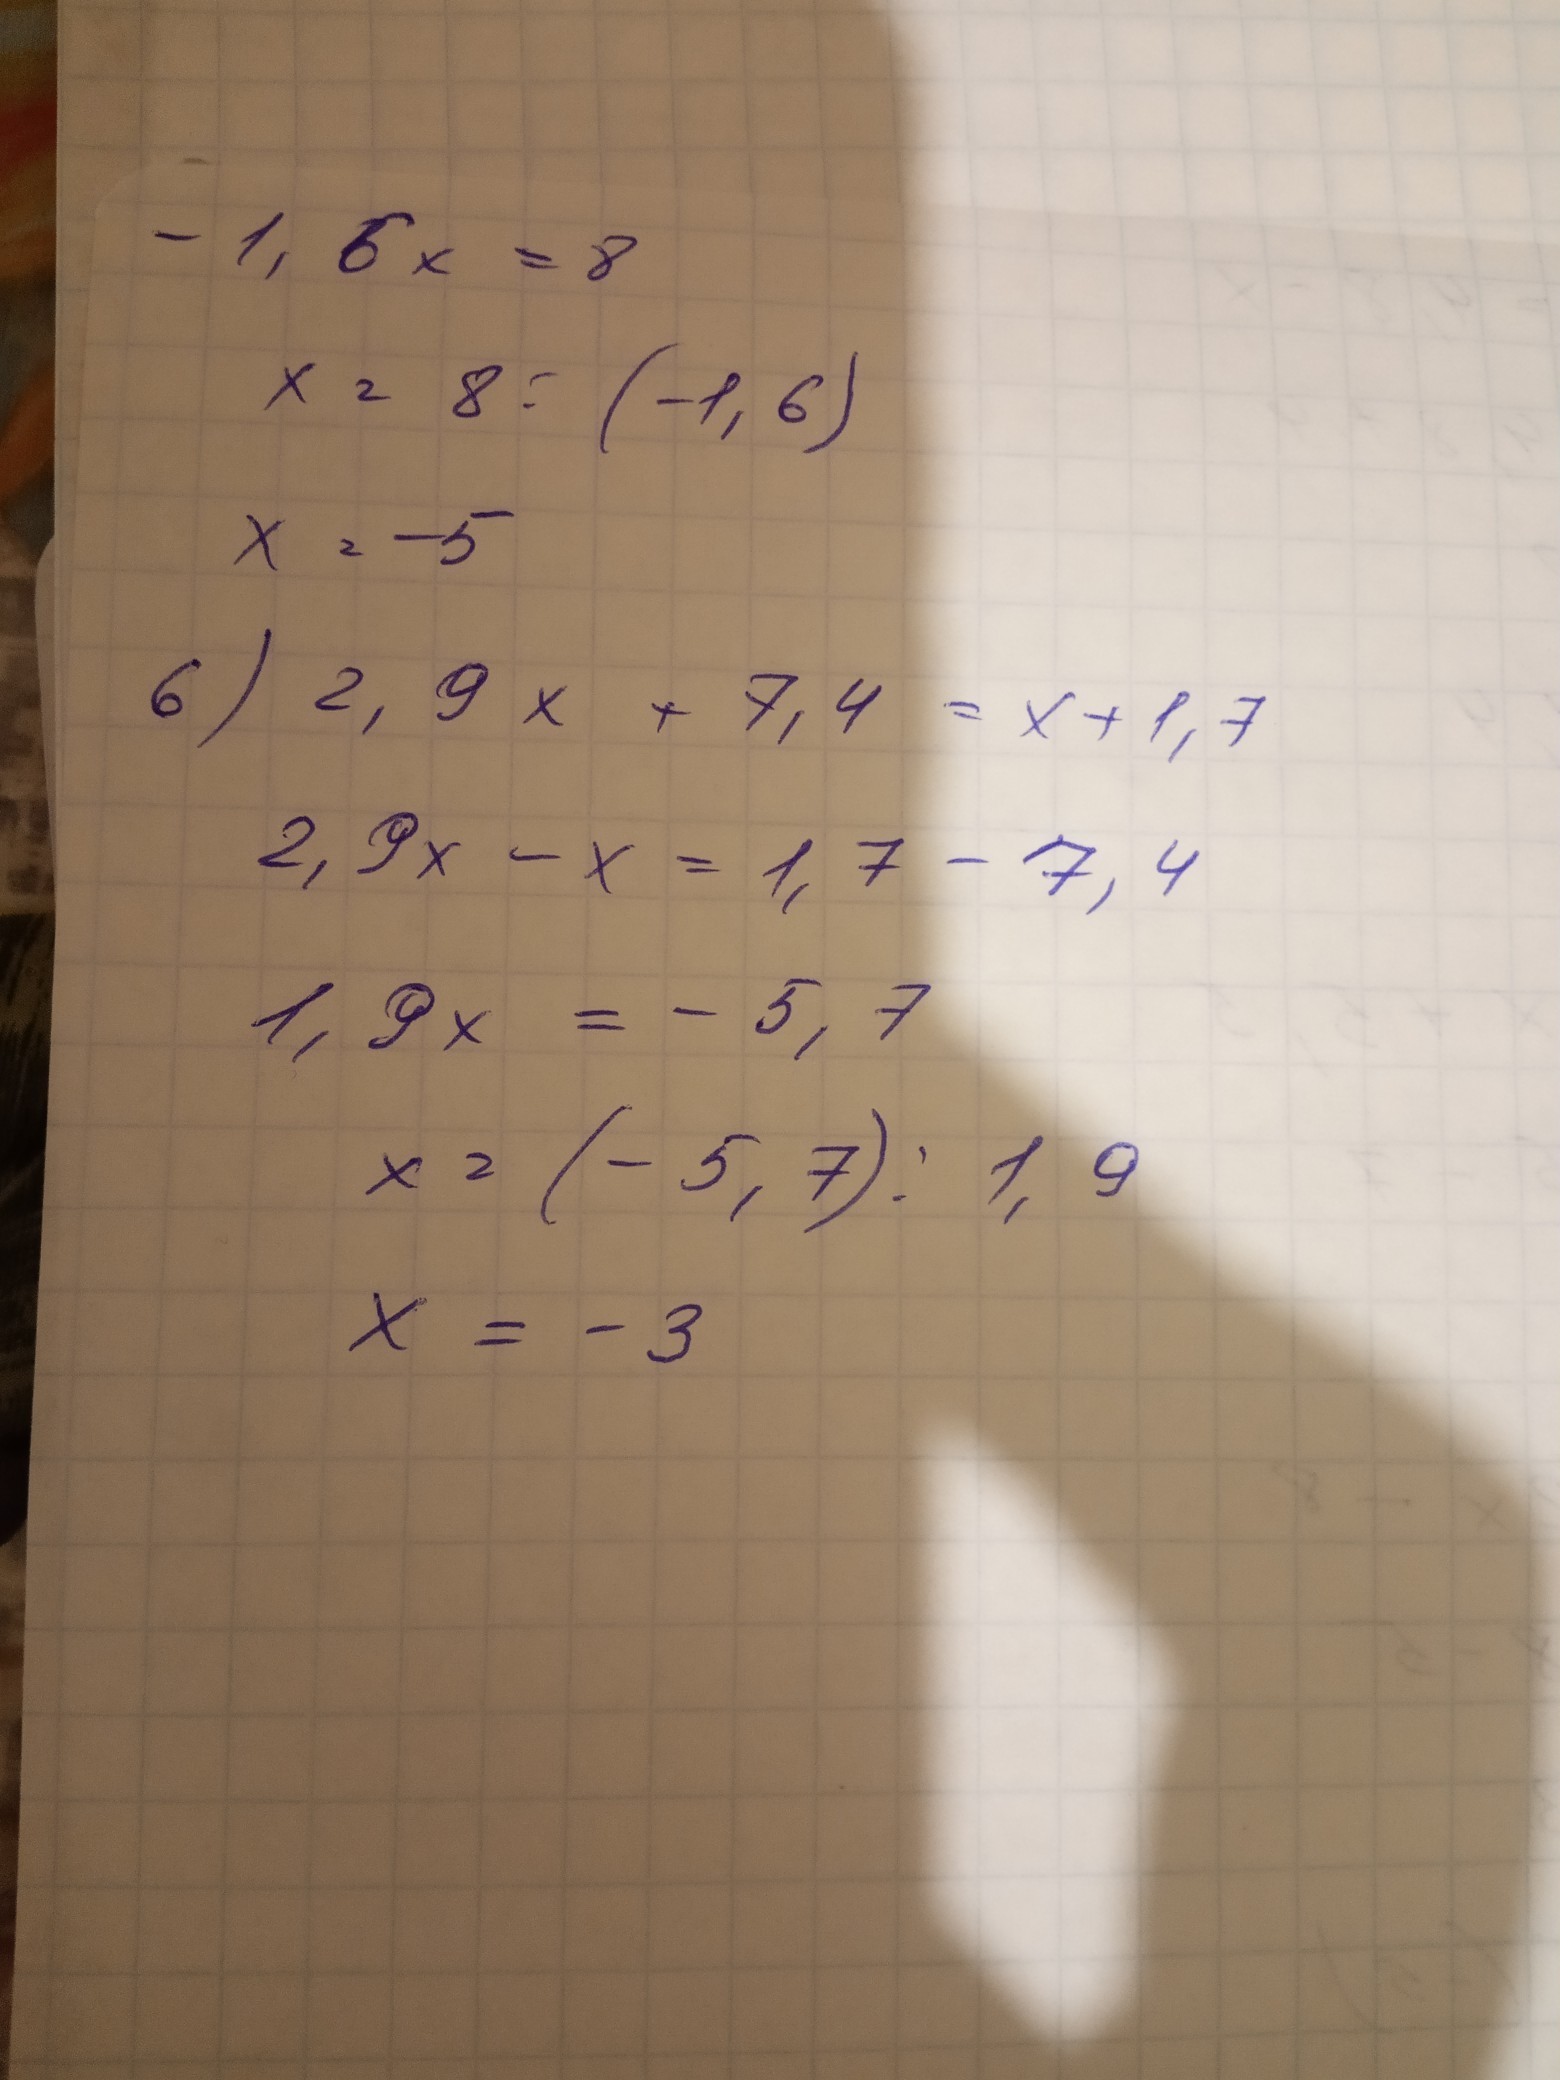 -1,6x = 8
x = 8 : (-1,6)
x = -5
6) 2,9x + 7,4 = x + 1,7
2,9x - x = 1,7 - 7,4
1,9x = -5,7
x = (-5,7) : 1,9
x = -3